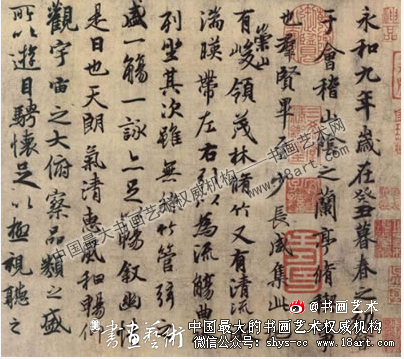 永和九年歲在癸丑暮春
于會稽山陰之蘭亭脩
也羣賢畢至少長咸集此
有崇山峻領茂林脩竹又有清流
湍暎帶左右引以為流觴曲
列坐其次雖無絲竹管弦
盛一觴一詠亦足以暢敘幽
是日也天朗氣清惠風和暢
觀宇宙之大俯察品類之盛
所以遊目騁懷足以極視聽之
中国最大的书画艺术权威机构—书画艺术网
www.18art.com
@书画艺术
書畫藝術
中国最大的书画艺术权威机构
微信公众号: shys-cc www.18art.com